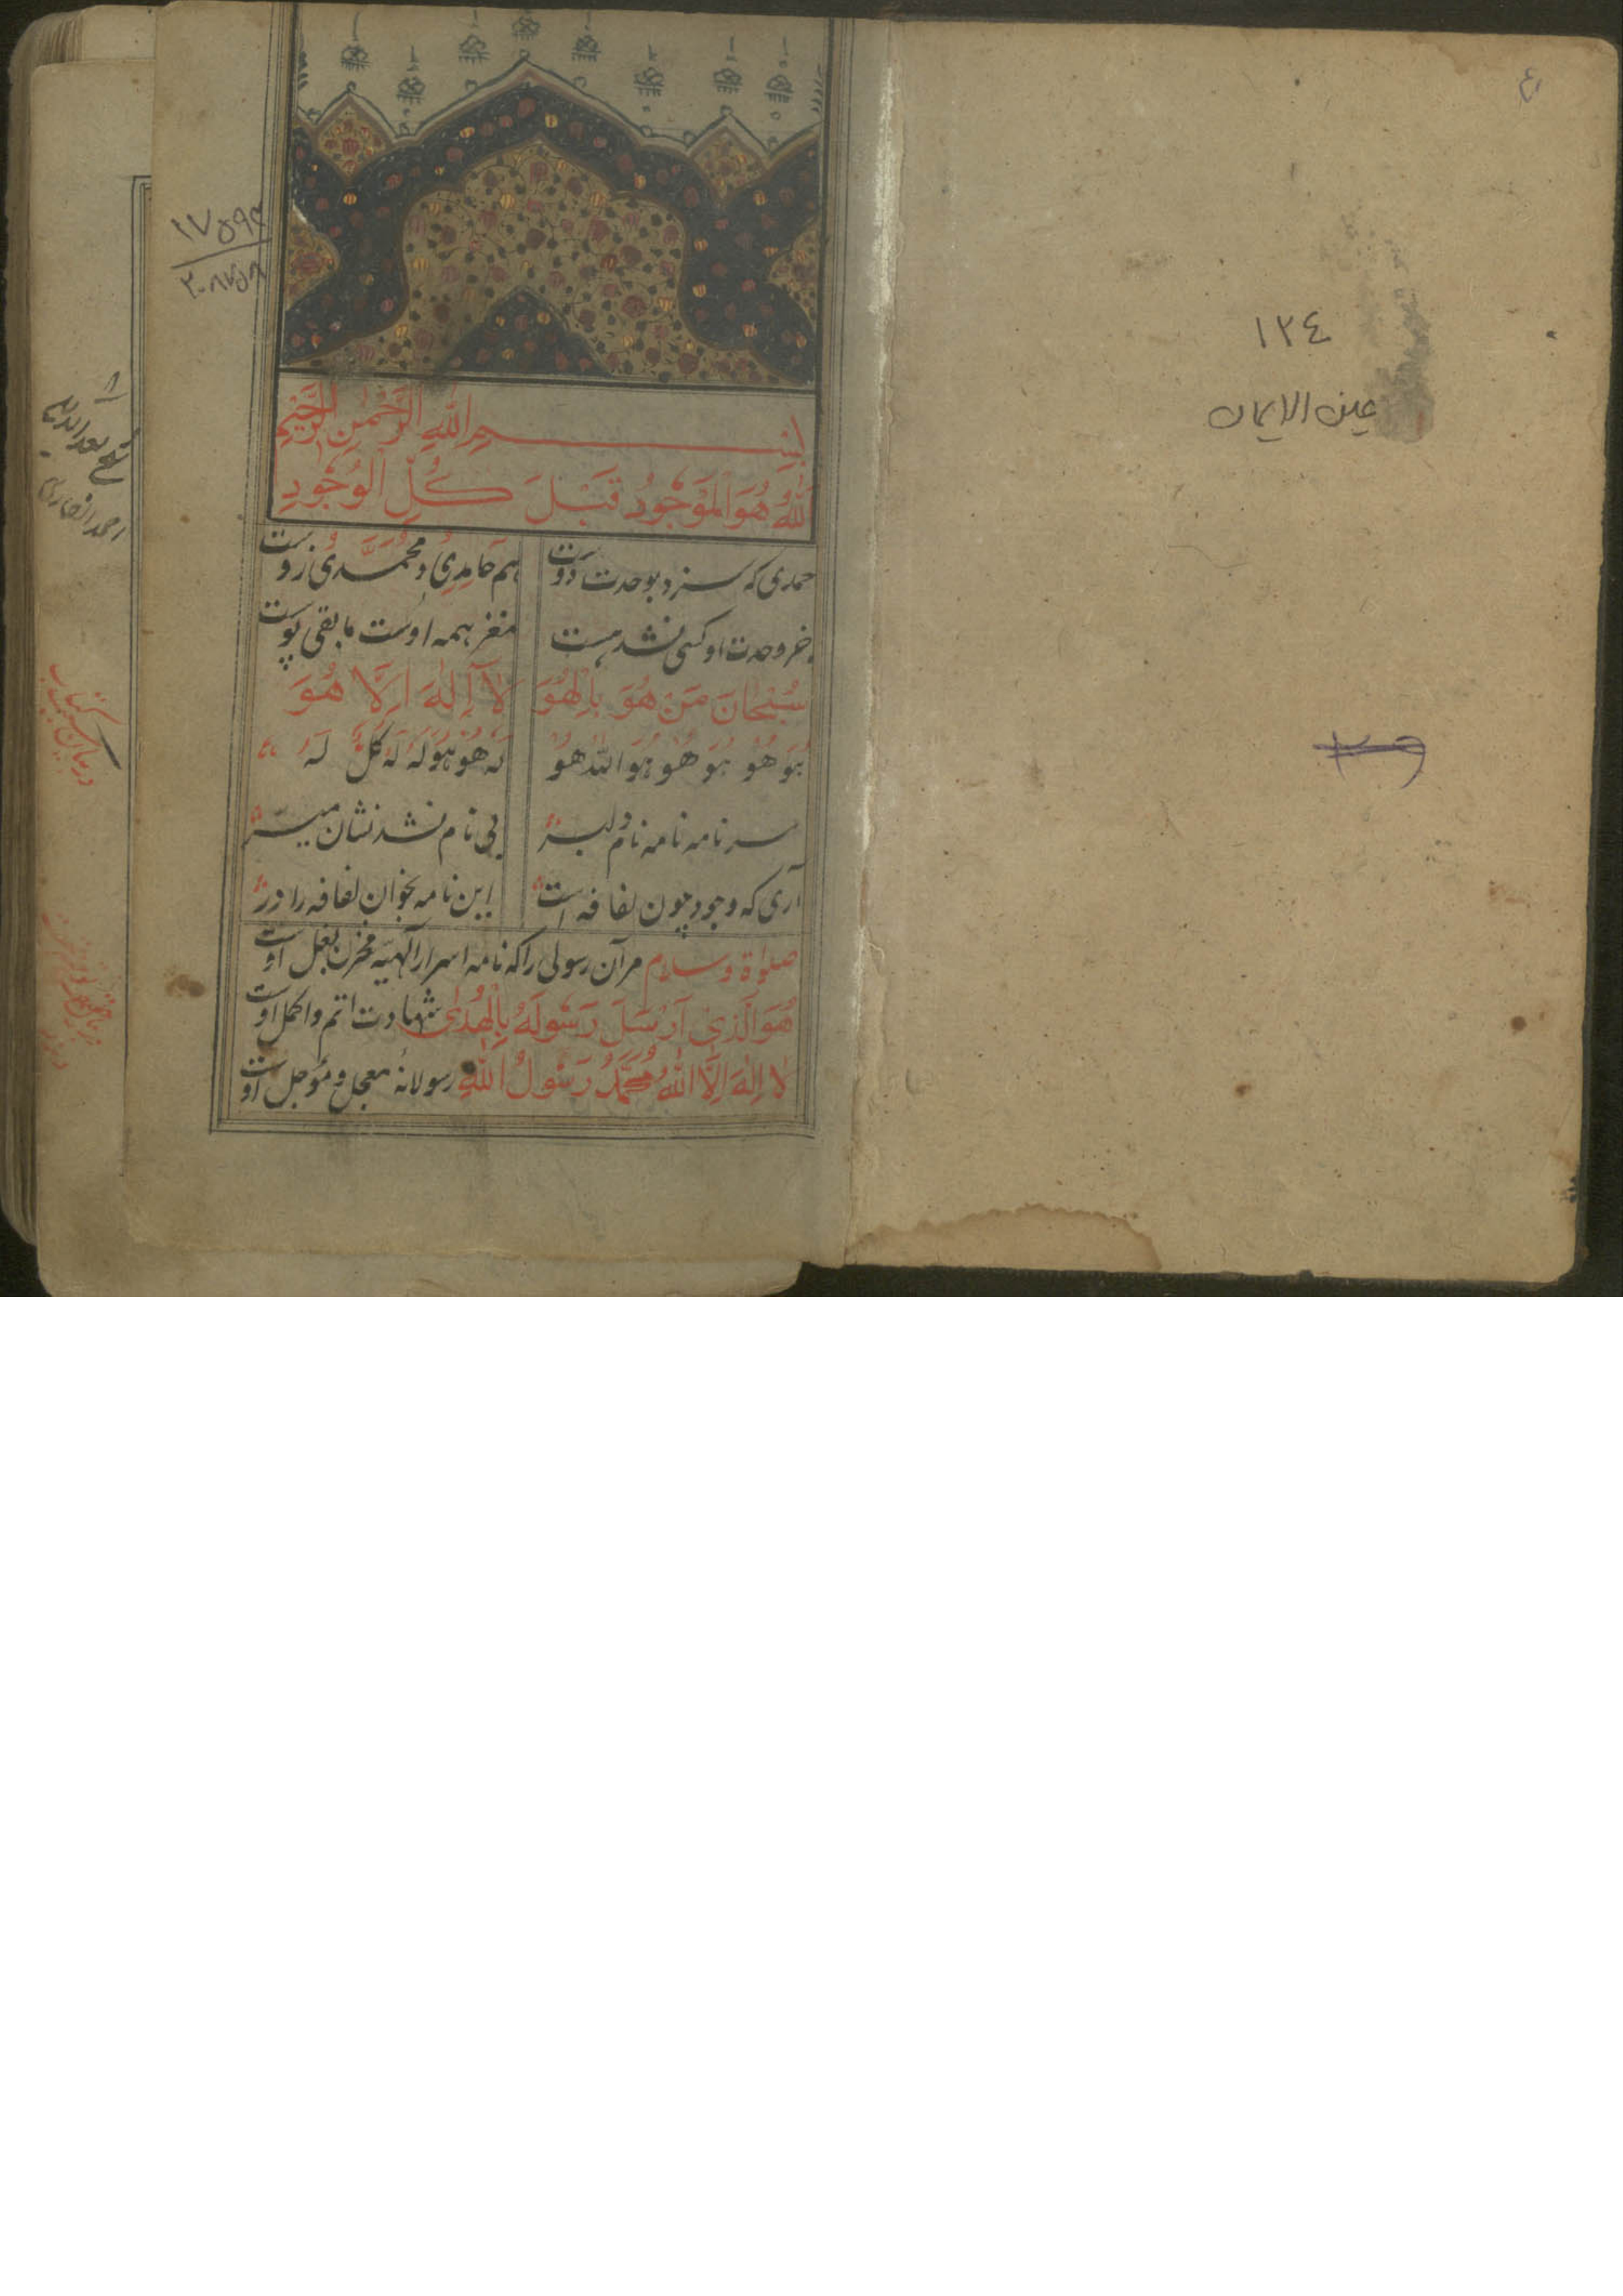 ١٢٤
عين الايمان
بِسْمِ اللّٰهِ الرَّحْمٰنِ الرَّحِيْمِ
اَللّٰهُ هُوَ الْمَوْجُودُ قَبْلَ كُلِّ الْوُجُودِ
حمدی که سزد بوحدت اوست هم حَامِدِی و مُحَمَّدی زوست
جز وحدت او کسی نشد هست مغز همه اوست مابقی پوست
سُبْحَانَ مَنْ هُوَ بِالْهُوَ لَا اِلٰهَ اِلَّا هُوَ
هُوَ هُوْ هُوَ هُوْ هُوَ اللّٰهُ هُوْ لَهُ هُوْ هُوَ لَهُ لَهُ كُلٌّ لَهُ
سر نامه نامه نام دلبر بی نام نشد نشان میسر
آری که وجود چون لفافه است این نامه بخوان لفافه را در
صلواة وسلام مرآن رسولی را که نامهٔ اسرار آلهیّه مخزن بغل اوست
هُوَ الَّذِی اَرْسَلَ رَسُولَهُ بِالْهُدٰی شهادت اتم و اکمل اوست
لَا اِلٰهَ اِلَّا اللّٰهُ مُحَمَّدٌ رَسُولُ اللّٰهِ رسولانهٔ معجل و مؤجل اوست